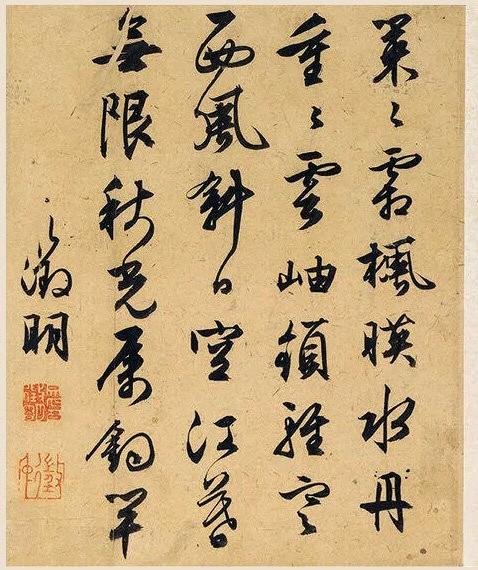 葉〻霜楓暎水丹
重〻雲岫鎖輕寒
西風斜日空江暮
無限秋光属釣竿
徵明